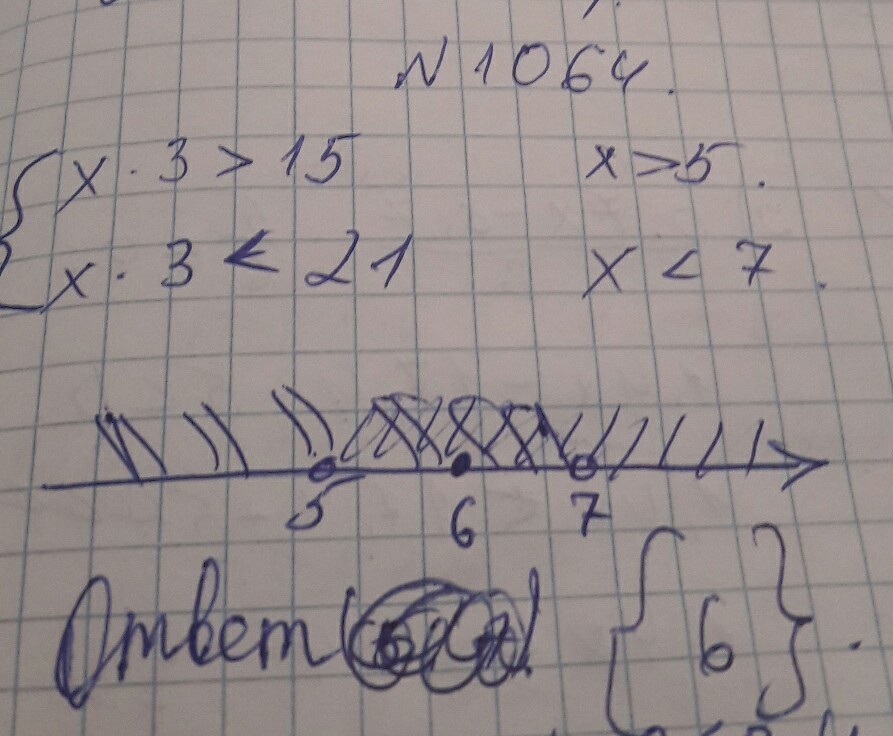 N 1064.
{ x · 3 > 15 x > 5.
x · 3 < 21 x < 7.
5 6 7
Ответ { 6 }.